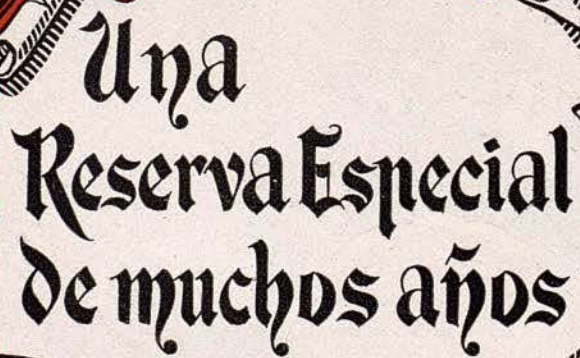 Una
Reserva Especial
de muchos años